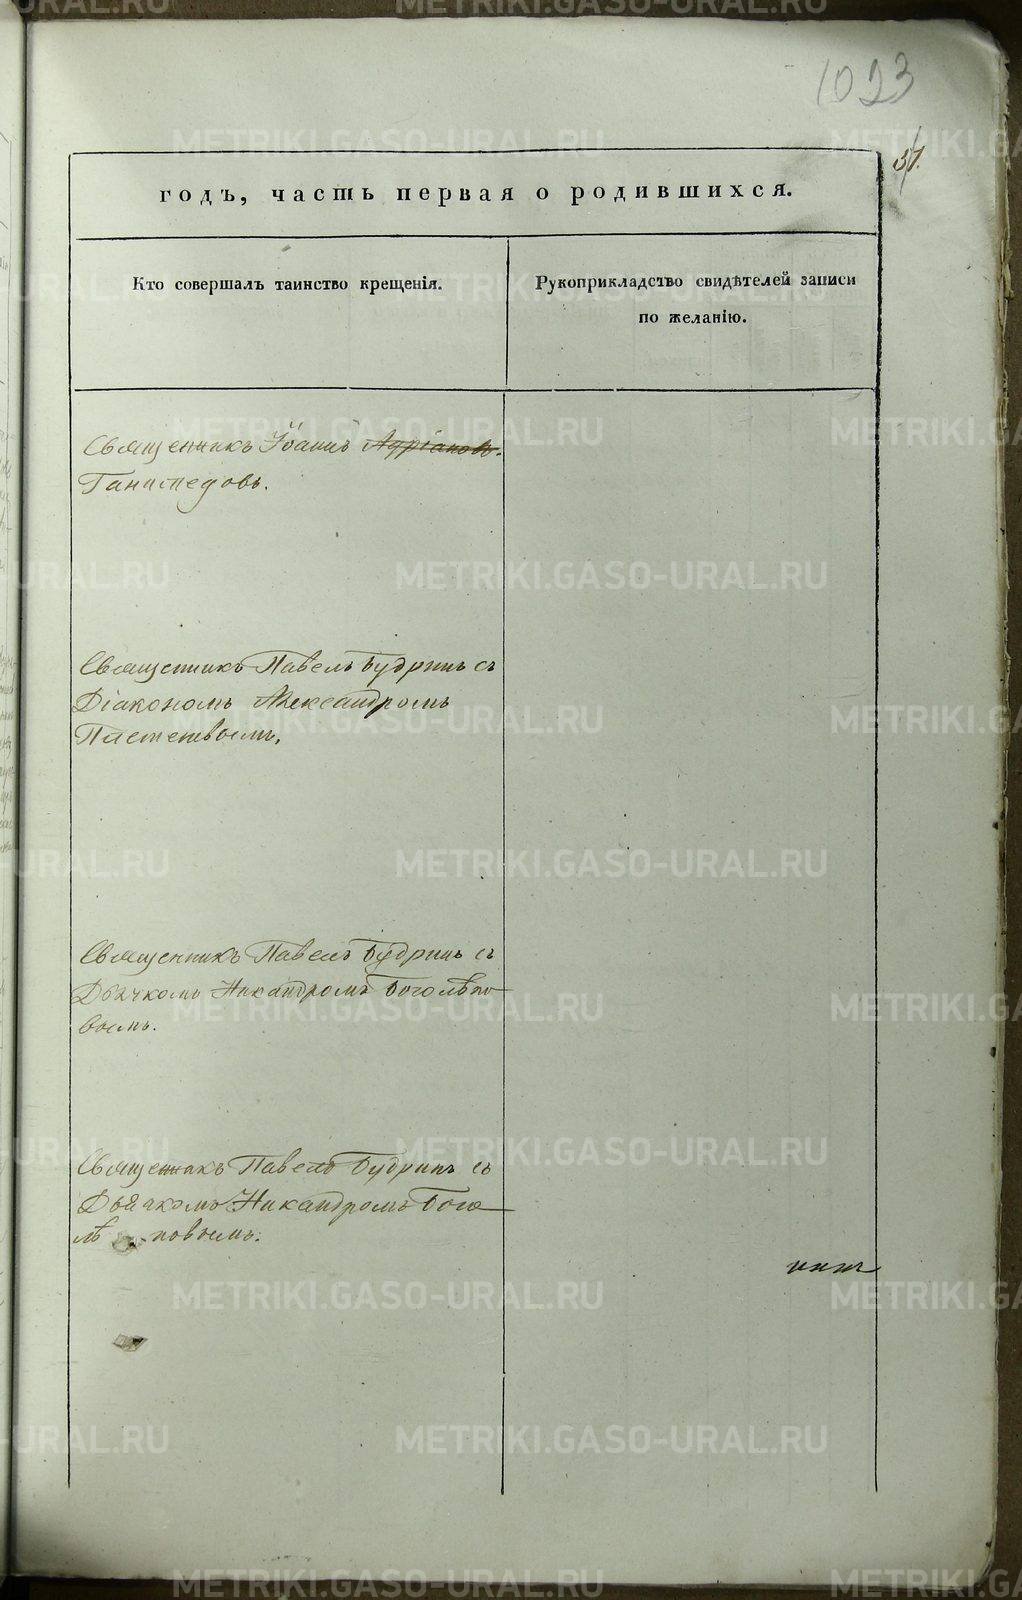 1023
37.
годъ, часть первая о родившихся.
Кто совершалъ таинство крещенія.
Рукоприкладство свидѣтелей записи
по желанію.
Священникъ Іоаннъ Адріановъ.
Священникъ Павелъ Будринъ съ
Діакономъ Александромъ
Священникъ Павелъ Будринъ съ
Дьячкомъ Никандромъ Боголѣпо
вымъ.
Священникъ Павелъ Будринъ съ
Дьячкомъ Никандромъ Бого
лѣповымъ.
METRIKI.GASO-URAL.RU